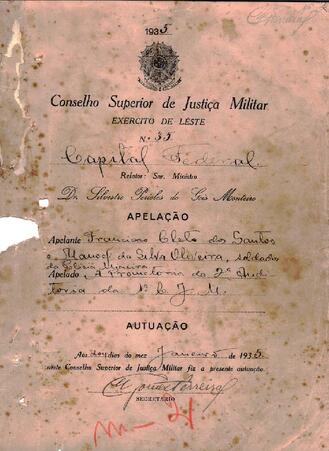 1935
Conselho Superior de Justiça Militar
EXERCITO DE LÉSTE
N.º 35
Capital Federal
Relator: Snr. Ministro
Dr. Silvestre Pericles de Goes Monteiro
APELAÇÃO
Apelante Francisco Cleto dos Santos
e Manoel da Silva Oliveira, soldados
da Policia Mineira
Apelado, A Promotoria da 2ª Audi
toria da 1ª C. J. M.
AUTUAÇÃO
Aos dias do mez Janeiro de 1935
neste Conselho Superior de Justiça Militar fiz a presente autuação.
Ferreira
SECRETÁRIO